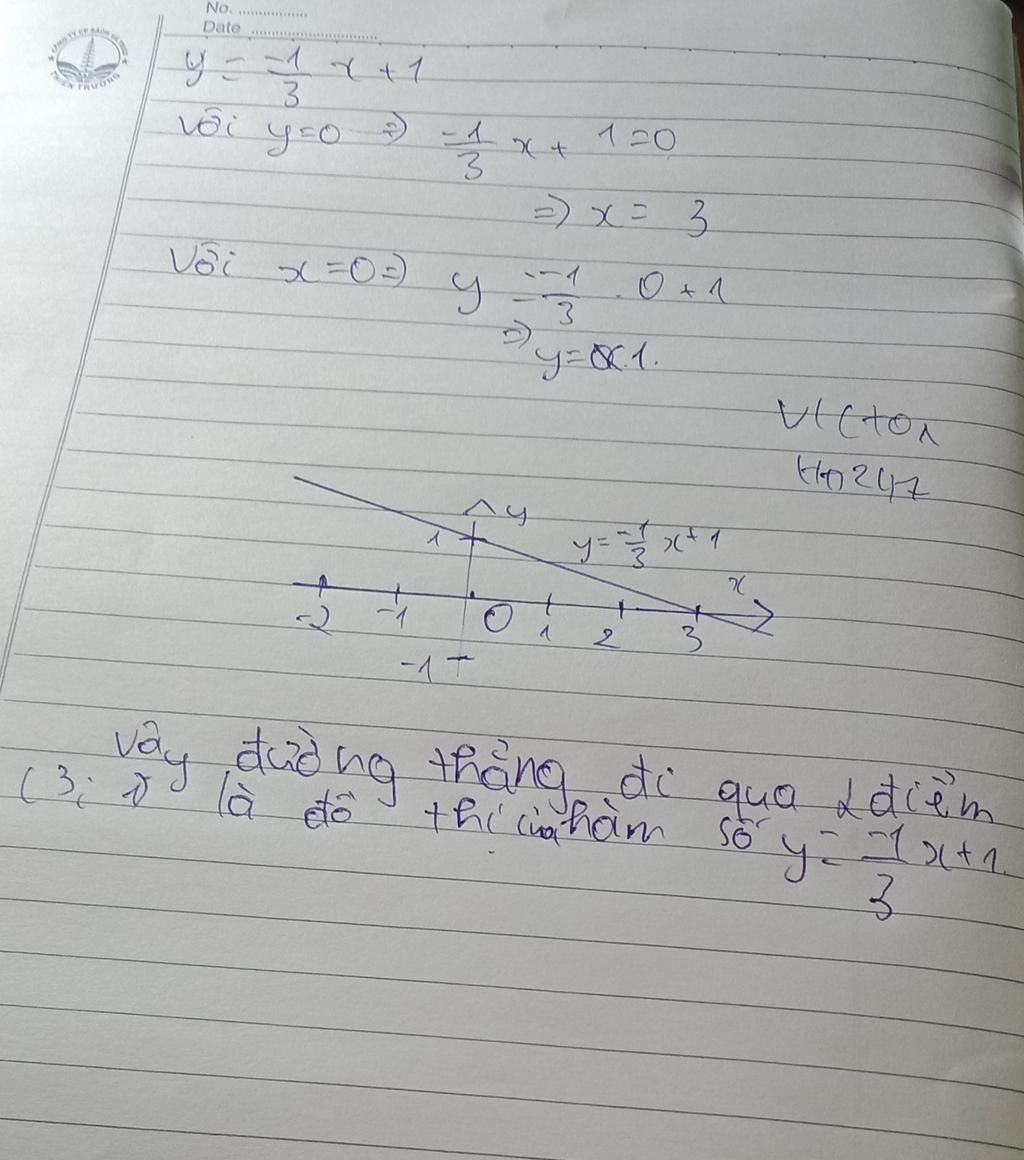 No. ................
Date ................................
CÔNG TY CP SÁCH
TRƯỜNG
y = -1/3 x + 1
Với y=0 => -1/3 x + 1=0
=> x = 3
Với x=0 => y = -1/3 . 0 + 1
=> y= 1.
VICTOR
247
y
1
y= -1/3 x+1
x
-2 -1 0 1 2 3
-1
Vậy đường thẳng đi qua 2 điểm
(3; 1) là đồ thị của hàm số y= -1/3 x+1